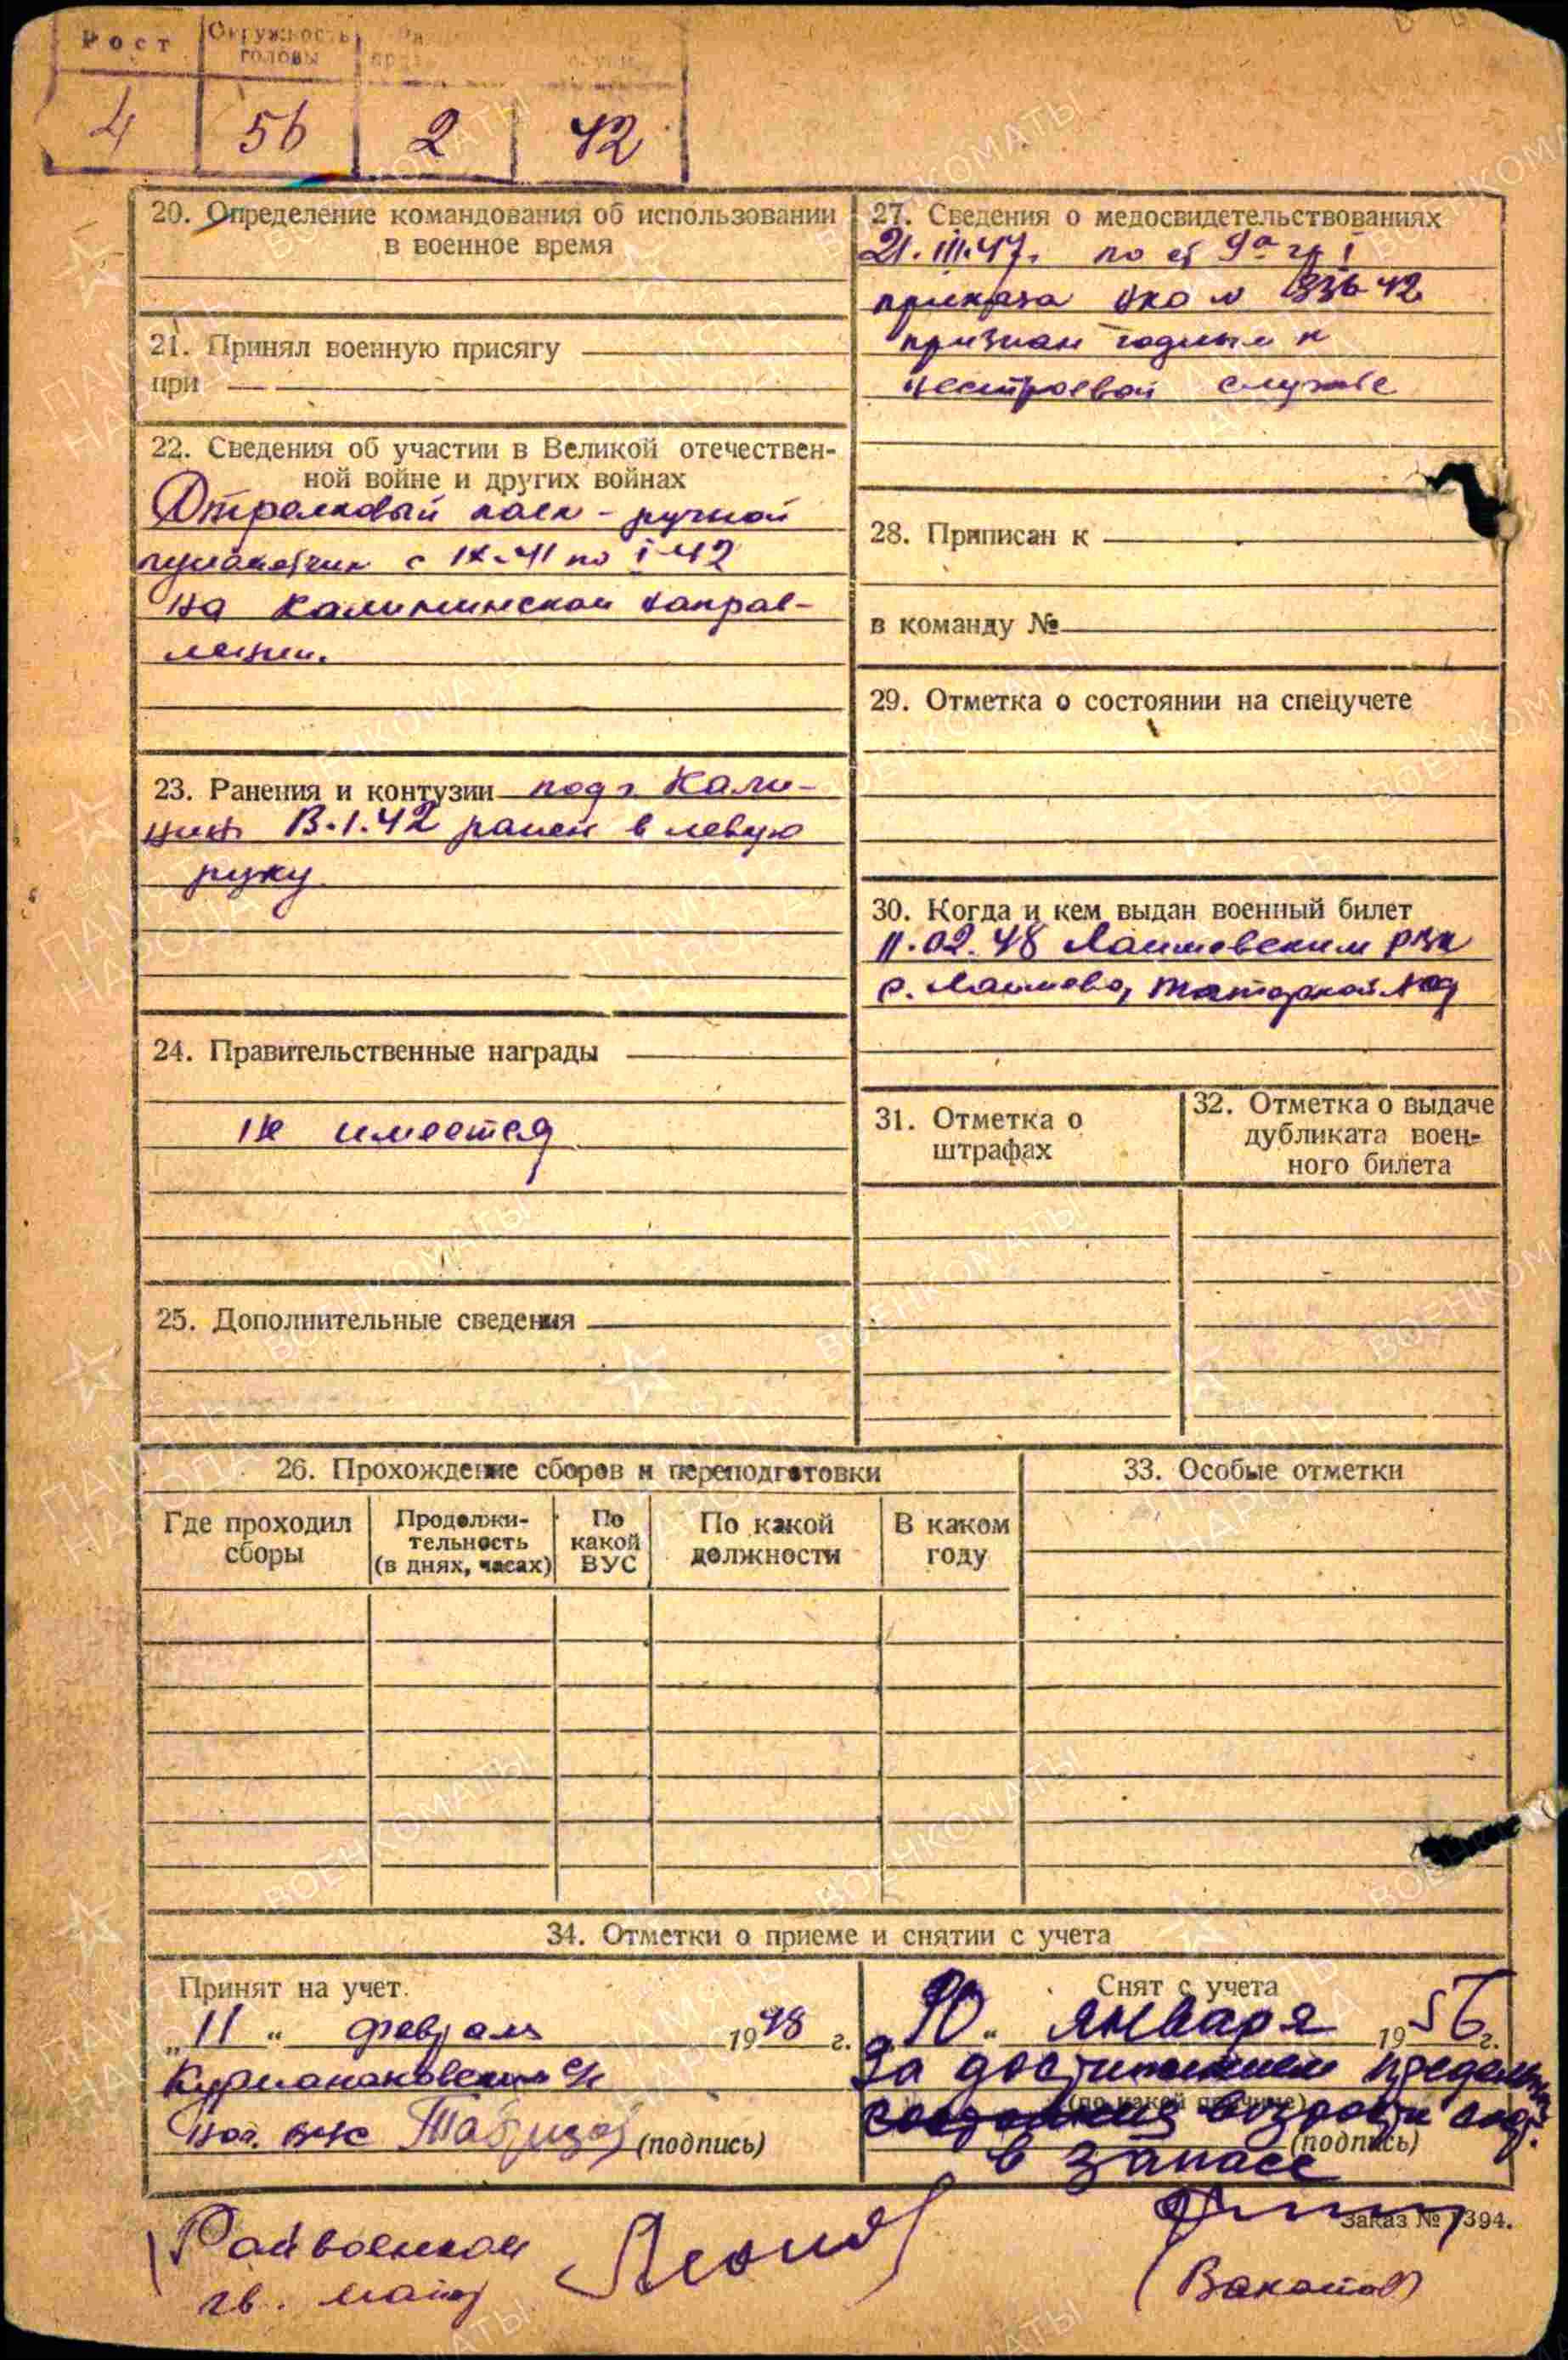 Рост
Окружность головы
4
56
2
42
20. Определение командования об использовании
в военное время
21. Принял военную присягу
при
22. Сведения об участии в Великой отечествен-
ной войне и других войнах
Стрелковый полк - ручной
пулеметчик с IX-41 по I-42
на Калининском направ-
лении.
23. Ранения и контузии под г. Кали-
нин В.1.42 ранен в левую
руку
24. Правительственные награды
не имеется
25. Дополнительные сведения
27. Сведения о медосвидетельствованиях
21.III.47г. по ст 9а гр I
приказа НКО N 336-42
признан годным к
нестроевой службе
28. Приписан к
в команду №
29. Отметка о состоянии на спецучете
30. Когда и кем выдан военный билет
11.02.48 Лаишевским РВК
с. Лаишево, Татарской
31. Отметка о
штрафах
32. Отметка о выдаче
дубликата воен-
ного билета
26. Прохождение сборов и переподготовки
Где проходил
сборы
Продолжи-
тельность
(в днях, часах)
По
какой
ВУС
По какой
должности
В каком
году
33. Особые отметки
34. Отметки о приеме и снятии с учета
Принят на учет.
„11“ февраля 1948 г.
нач. ВУС (подпись)
Снят с учета
„10“ января 1956 г.
За достижением предельн.
(по какой причине)
возраста сост.
(подпись)
в запасе
Заказ № 1394.
Райвоенком
гв. майор
ПАМЯТЬ НАРОДА
ВОЕНКОМАТЫ